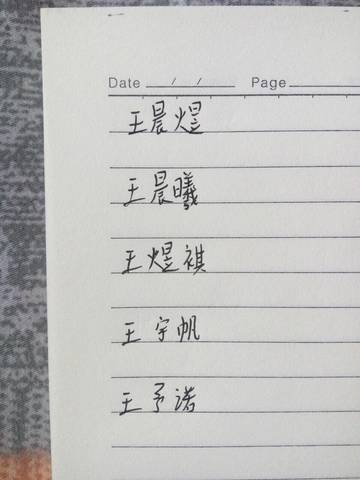 Date / / Page
王晨煜
王晨曦
王煜祺
王宇帆
王予诺